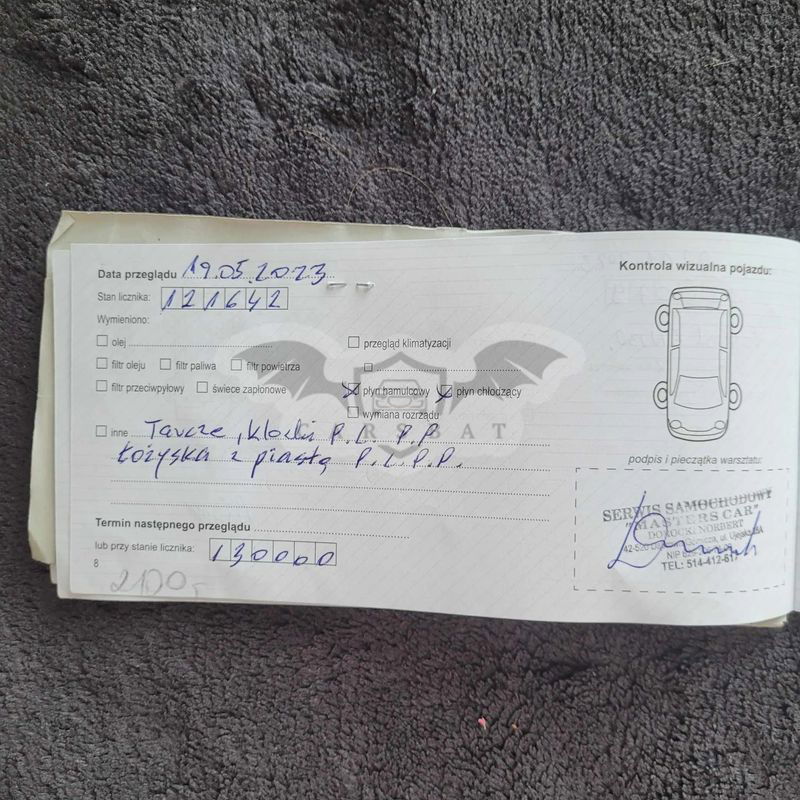 Data przeglądu 19.05.2023
Kontrola wizualna pojazdu:
Stan licznika: 121642
Wymieniono:
olej
przegląd klimatyzacji
filtr oleju filtr paliwa filtr powietrza
filtr przeciwpyłowy świece zapłonowe płyn hamulcowy płyn chłodzący
wymiana rozrządu
inne Tarcze, klocki P.L. P.P
Łożyska z piastą P.L.P.P.
podpis i pieczątka warsztatu:
SERWIS SAMOCHODOWY
"MASTERSCAR"
DOROCKI NORBERT
42-520 ul.
NIP
TEL: 514-412-617
Termin następnego przeglądu
lub przy stanie licznika: 130000
8
2100